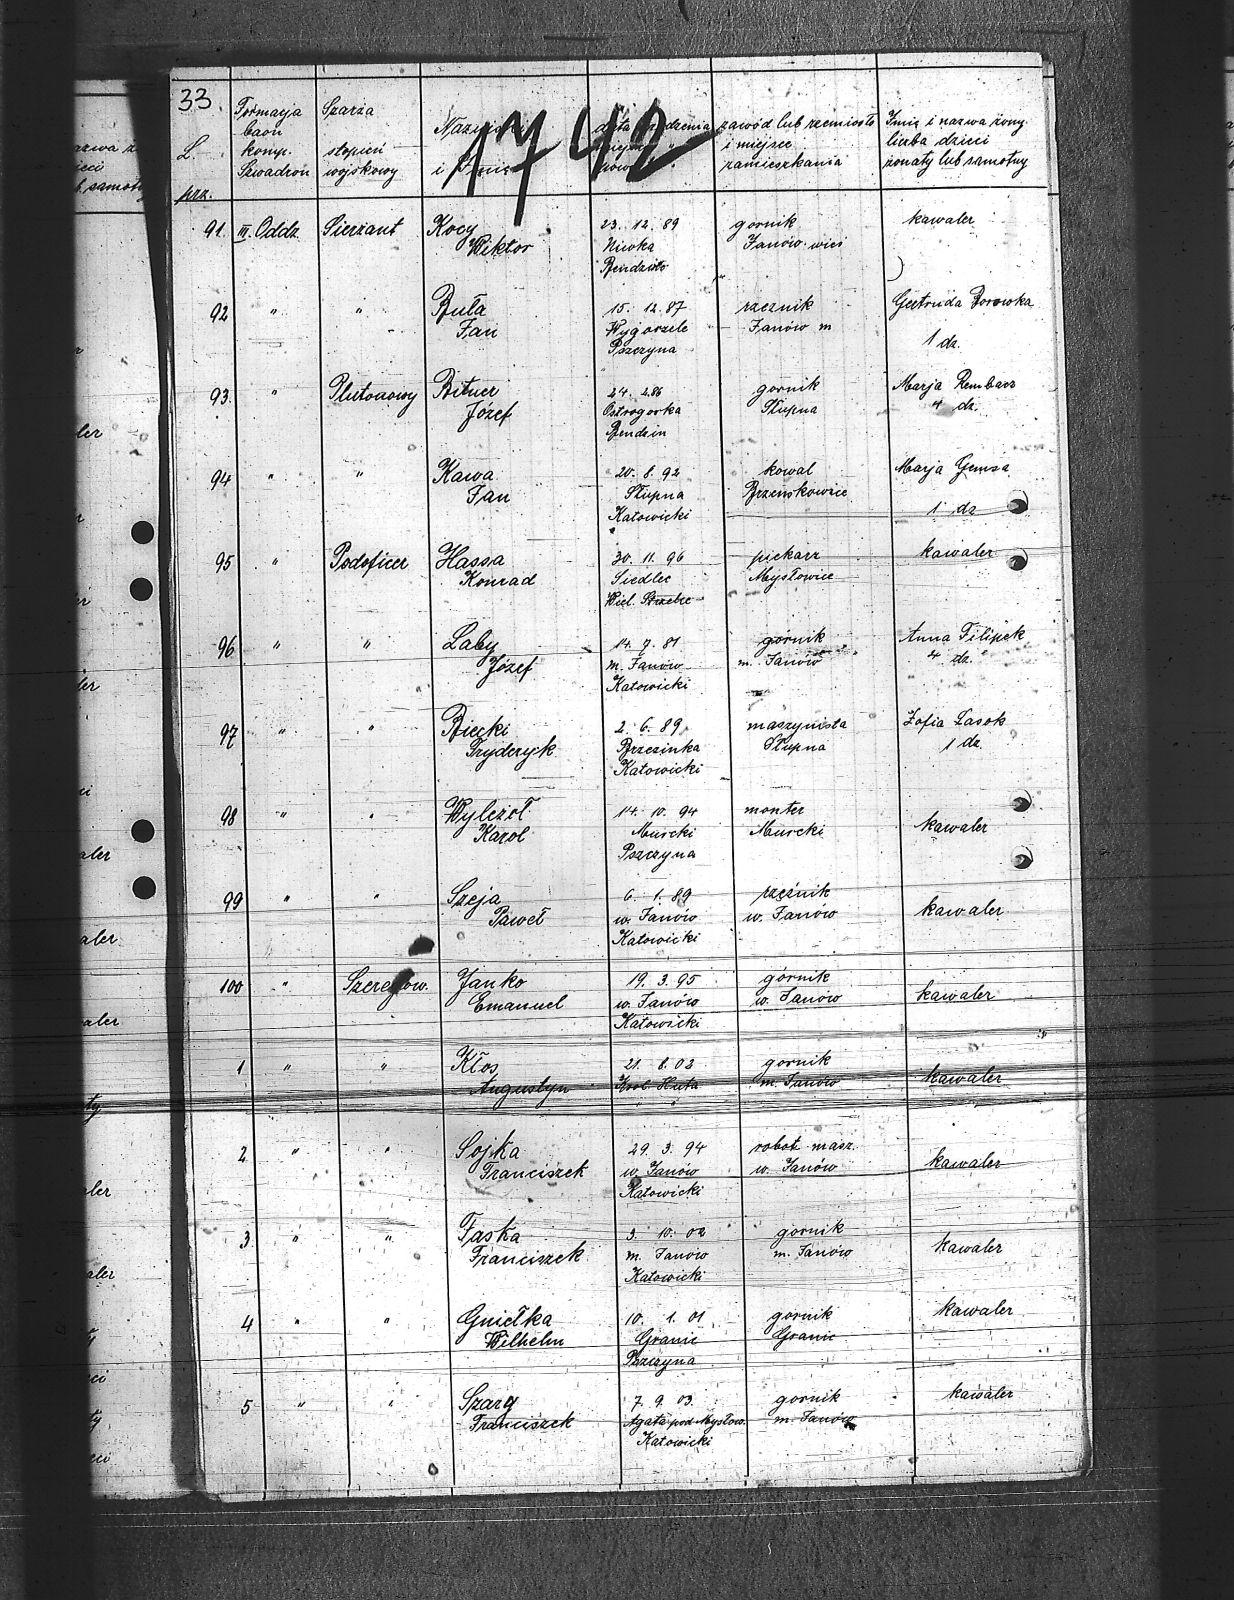 33
1742
L. prz.
Formacja baon komp. Szwadron
Szarża stopień wojskowy
i
zawód lub rzemiosło i miejsce zamieszkania
Imię i nazwa żony liczba dzieci żonaty lub samotny
91. III. Oddz. Sierżant Kocy 23. 12. 89 gornik kawaler
Wiktor Niwka Janów wieś
92 " " Buła 15. 12. 87 rzeznik Gertruda Borowka
Jan Wygorzele Janów m
Pszczyna 1 dz.
93. " Plutonowy Bitner 24. 2.86 gornik Marja Rembacz
Józef Ostrogorka Słupna 4 dz.
Bendzin
94 " " Kawa 20. 8. 92 kowal Marja Gemsa
Jan Słupna Brzenskowice
Katowicki 1 dz
95 " Podoficer Hassa 30. 11. 96 piekarz kawaler
Konrad Siedlec Mysłowice
Wiel. Strzelce
96 " " Laby 14. 7. 81 górnik Anna Filipek
Józef m. Janów m. Janów 4 dz.
Katowicki
97 " " Biecki 2. 6. 89 maszynista Zofia Lasok
Fryderyk Brzezinka Słupna 1 dz.
Katowicki
98 " " Wyleżoł 14. 10. 94 monter
Karol Murcki Murcki kawaler
Pszczyna
99 " " Szeja 6. 1. 89 rzeźnik
Paweł w. Janów w. Janów kawaler
Katowicki
100 " Szeregow. Janko 19. 3. 95 górnik
Emanuel w. Janów w. Janów kawaler
Katowicki
1 " " Kłos 21. 8. 02 gornik
Augustyn Krol. Huta m. Janów kawaler
2 " " Sojka 29. 3. 94 robot. masz.
Franciszek w. Janów w. Janów kawaler
Katowicki
3 " " Jaska 3. 10. 02 gornik
Franciszek m. Janów m. Janów kawaler
Katowicki
4 " " Gniełka 10. 1. 01 gornik kawaler
Wilhelm Granic Granic
Pszczyna
5 " " Szarg 7. 9. 03. gornik kawaler
Franciszek Agata pod Mysłow. m. Janów
Katowicki